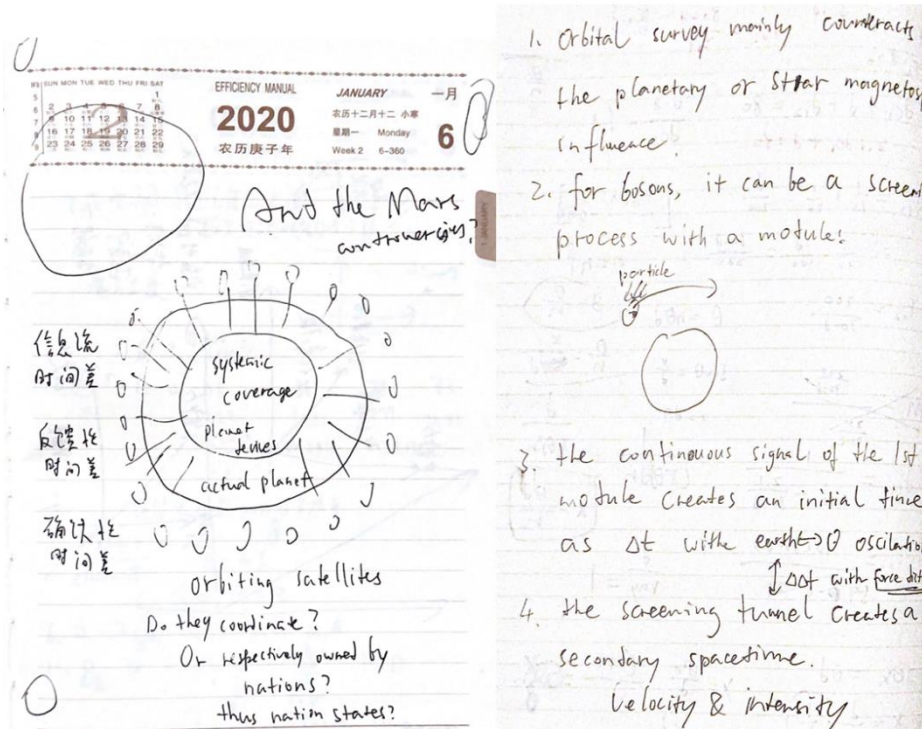 SUN MON TUE WED THU FRI SAT
1
2 3 4 5 6 7 8
9 10 11 12 13 14 15
16 17 18 19 20 21 22
23 24 25 26 27 28 29
EFFICIENCY MANUAL
2020
农历庚子年
JANUARY 一月
农历十二月十二 小寒
星期一 Monday
Week 2 6-360
6
1 JANUARY
And the Mars
controversies?
信息流
时间差
反馈性
时间差
确认性
时间差
systemic
coverage
planet
actual planet
orbiting satellites
Do they coordinate?
Or respectively owned by
nations?
thus nation states?
1. Orbital survey mainly counteracts
the planetary or star magnetos
influence.
2. for bosons, it can be a screen
process with a module:
particle
3. the continuous signal of the 1st
module creates an initial
as Δt withe earth→ oscilation
ΔΔt with force
4. the screening tunnel creates a
secondary spacetime.
Velocity & intensity